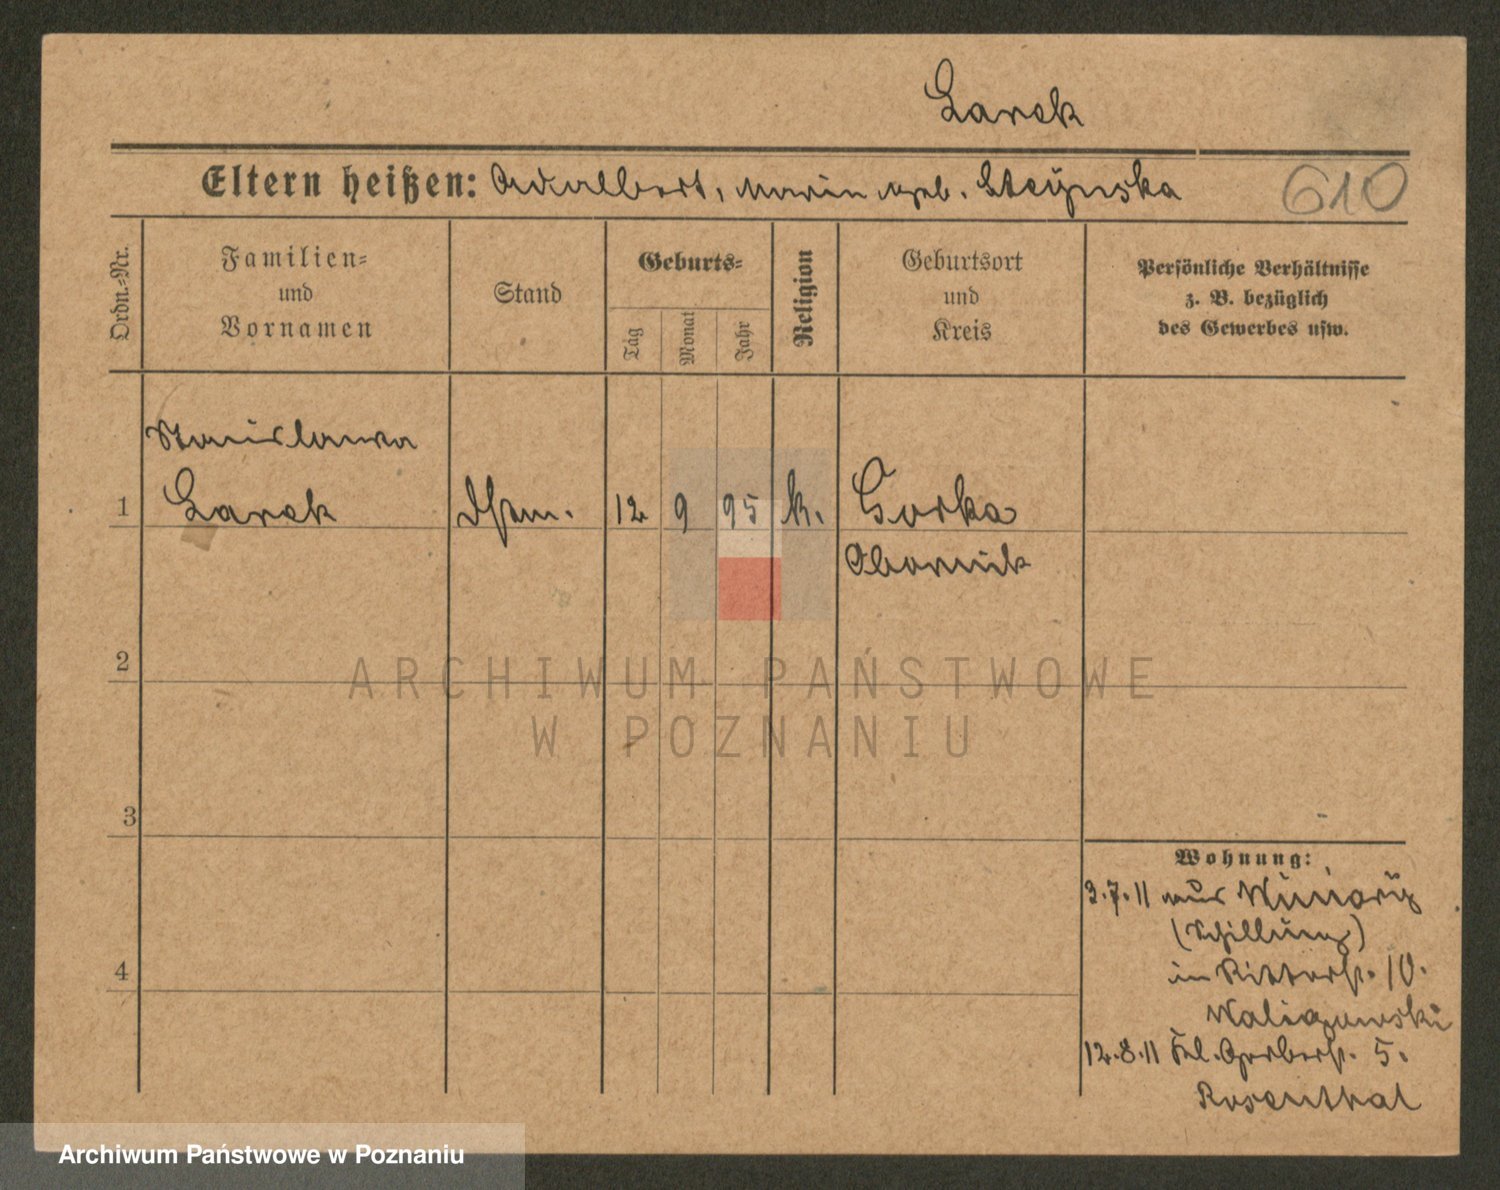 Larek
Eltern heißen: Adalbert, Marie geb.
610
Ordn.-Nr.
Familien-
und
Vornamen
Stand
Geburts-
Tag
Monat
Jahr
Religion
Geburtsort
und
Kreis
Persönliche Verhältnisse
z. B. bezüglich
des Gewerbes usw.
Stanislawa
1 Larek 12 9 95 k. Gorka
Obornik
2
ARCHIWUM PAŃSTWOWE
W POZNANIU
3
Wohnung:
3.7.11 aus Winiary
(Schilling)
in Ritterstr. 10.
4
12.8.11 Kl. Gerberstr. 5.
Rosenthal
Archiwum Państwowe w Poznaniu